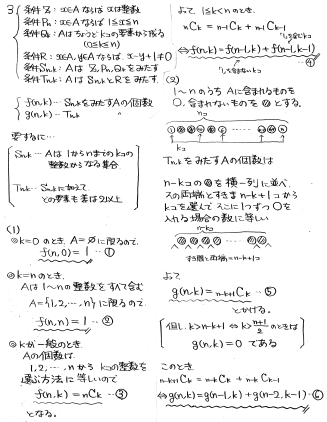 3 条件Z: x∈A ならば xは整数
条件Pn: x∈A ならば 1≤x≤n
条件Qk: A はちょうどk個の要素から成る
(0≤k≤n)
条件R: x∈A, y∈A ならば、x-y+1≠0
条件Sn,k: A は Z, Pn, Qk をみたす
条件Tn,k: A は Sn,k と R をみたす
f(n,k) … Sn,k をみたす A の個数
g(n,k) … Tn,k 〃
要するに…
Sn,k … A は 1 から n までの k個の
整数からなる集合
Tn,k … Sn,k に加えて
どの要素も差は2以上
(1)
◎k=0 のとき、A=∅に限るので、
f(n,0)=1 …①
◎k=n のとき、
A は 1~n の整数をすべて含む
A={1,2,…,n}に限るので
f(n,n)=1 …②
◎kが一般のとき
A の個数は
1,2,…,n から k個の整数を
選ぶ方法に等しいので
f(n,k)=nCk …③
となる。
よって、1≤k<n のとき、
nCk = n-1Ck + n-1Ck-1
⇔f(n,k)=f(n-1,k)+f(n-1,k-1)
④
(2)
1~n のうち A に含まれるものを
〇, 含まれないものを とする。
n個
k個
Tn,k をみたす A の個数は
n-k個の を横一列に並べ、
その両端とすきま n-k+1 つから
k個を選んで そこに1つずつ〇を
入れる場合の数に等しい
n-k個
すき間と両端=n-k+1コ
よって
g(n,k)=n-k+1Ck …⑤
とかける。
但し、k>n-k+1 ⇔ k>n+1/2 のときは
g(n,k)=0 である
このとき
n-k+1Ck = n-kCk + n-kCk-1
⇔g(n,k)=g(n-1,k)+g(n-2,k-1) …⑥